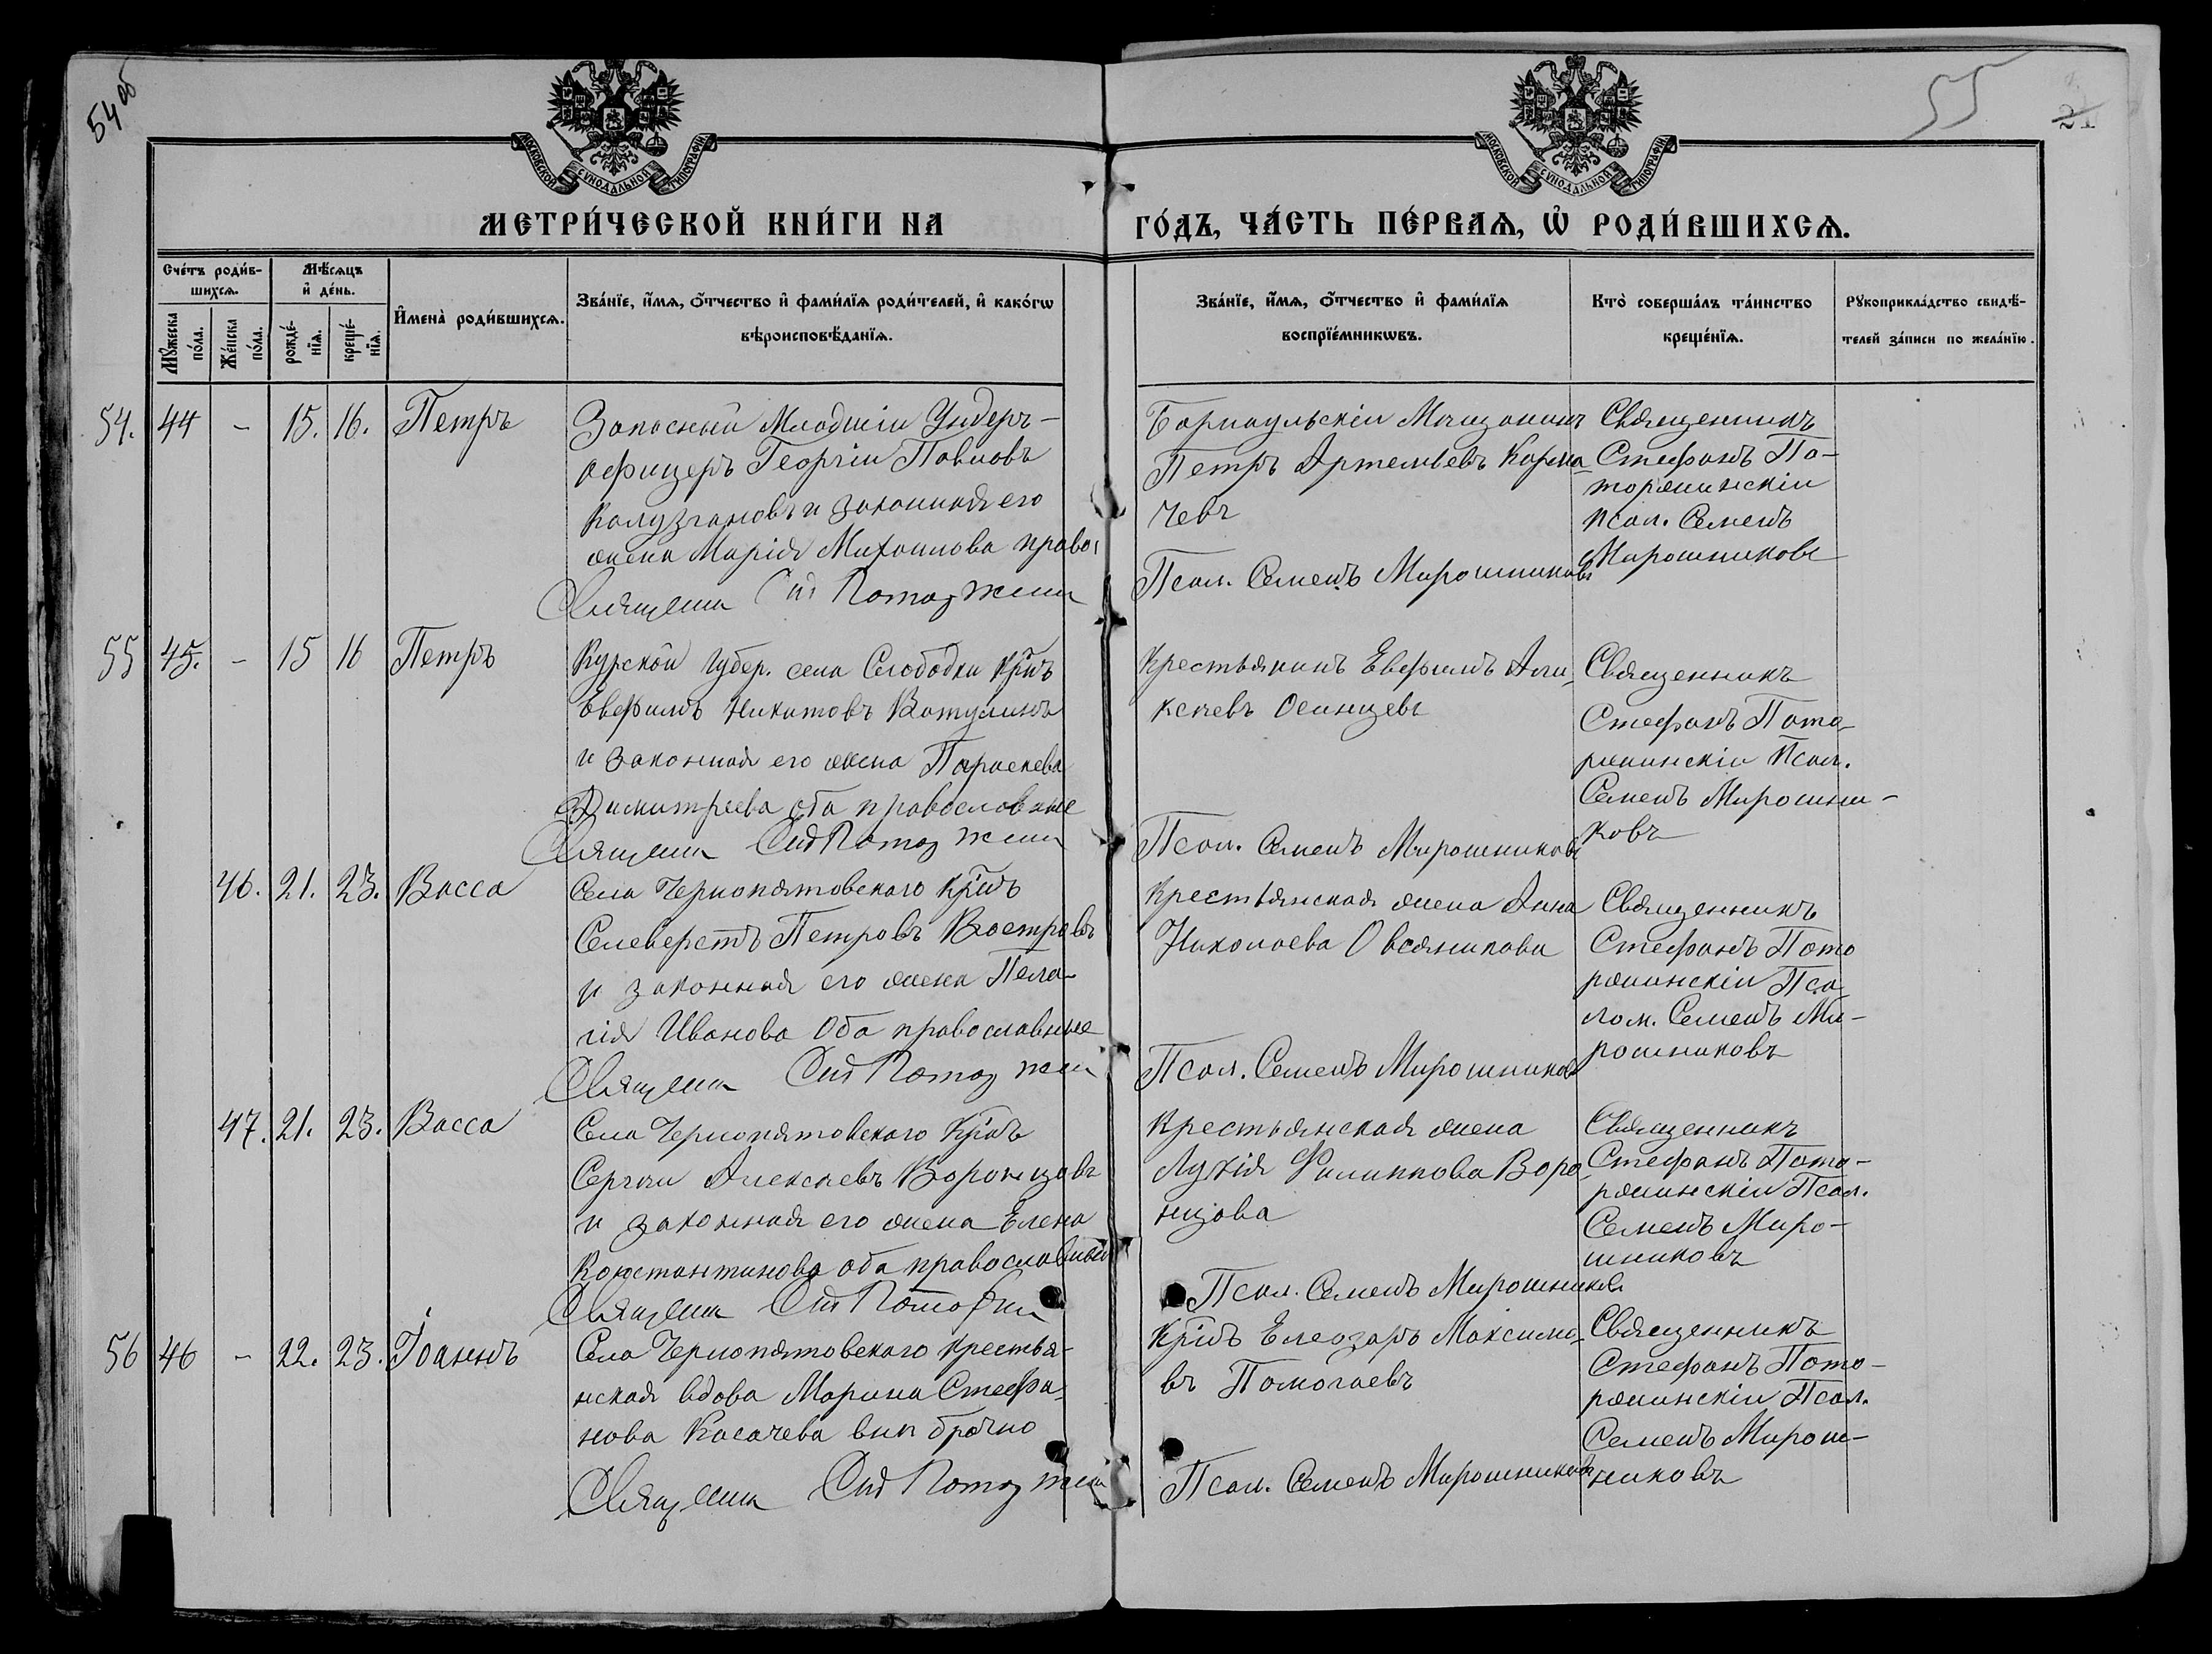 54 об
55
21
МОСКОВСКОЙ СѴНОДАЛЬНОЙ ТИПОГРАФІИ
МОСКОВСКОЙ СѴНОДАЛЬНОЙ ТИПОГРАФІИ
МЕТРИ́ЧЕСКОЙ КНИ́ГИ НА
ГО́ДЪ, ЧА́СТЬ ПЕ́РВАѦ, Ѡ҆ РОДИ́ВШИХСѦ.
Сче́тъ роди́в-
шихсѧ.
Мꙋ́жеска
по́ла.
Же́нска
по́ла.
Мѣ́сѧцъ
и҆ де́нь.
рожде́-
нїѧ.
креще́-
нїѧ.
И҆мена̀ роди́вшихсѧ.
Зва́нїе, и҆́мѧ, ѻ҆́тчество и҆ фами́лїѧ роди́телей, и҆ како́гѡ
вѣроисповѣ́данїѧ.
Зва́нїе, и҆́мѧ, ѻ҆́тчество и҆ фами́лїѧ
воспрїе́мникѡвъ.
Кто̀ соверша́лъ та́инство
креще́нїѧ.
Рꙋкоприкла́дство свидѣ́-
телей за́писи по жела́нїю.
54. 44 - 15. 16. Петръ
Запасный Младшій Ундеръ-
офицеръ Георгій Павловъ
Калузгановъ и законная его
жена Марія Михаилова право
Священ
Барнаульскій Мѣщанинъ
Петръ Артемьевъ Карма
чевъ
Псал. Семенъ Мирошниковъ
Священникъ
Стефанъ По-
торжинскій
псал. Семенъ
Мирошниковъ
55 45. - 15 16 Петръ
Курской Губер. села Слободки Крнъ
Евфимъ Никитовъ Ватулинъ
и законная его жена Параскева
Димитріева оба православные
Священ
Крестьянинъ Евфимъ Але-
ксѣевъ Осинцевъ
Псал. Семенъ Мирошниковъ
Священникъ
Стефанъ Пото-
ржинскій Псал.
Семенъ Мирошни-
ковъ
46. 21. 23. Васса
Села Чернопятовскаго Крнъ
Селеверстъ Петровъ Востровъ
и законная его жена Пела-
гія Иванова оба православные
Священ
Крестьянская жена Анна
Николаева Овсяникова
Псал. Семенъ Мирошниковъ
Священникъ
Стефанъ Пото
ржинскій Пса
лом. Семенъ Ми-
рошниковъ
47. 21. 23. Васса
Села Чернопятовскаго Крнъ
Сергѣй Алексѣевъ Воронцовъ
и законная его жена Елена
Константинова оба православные
Священ
Крестьянская жена
Лукія Филиппова Воро-
нцова
Псал. Семенъ Мирошниковъ
Священникъ
Стефанъ Пото-
ржинскій Псал.
Семенъ Миро-
шниковъ
56 46 - 22. 23. Іоаннъ
Села Чернопятовскаго крестья-
нская вдова Марина Стефа-
нова Касачева внѣ брачно
Священ
Крнъ Елеозаръ Максимо-
въ Помогаевъ
Псал. Семенъ Мирошниковъ
Священникъ
Стефанъ Пото-
ржинскій Псал.
Семенъ Мирош-
никовъ